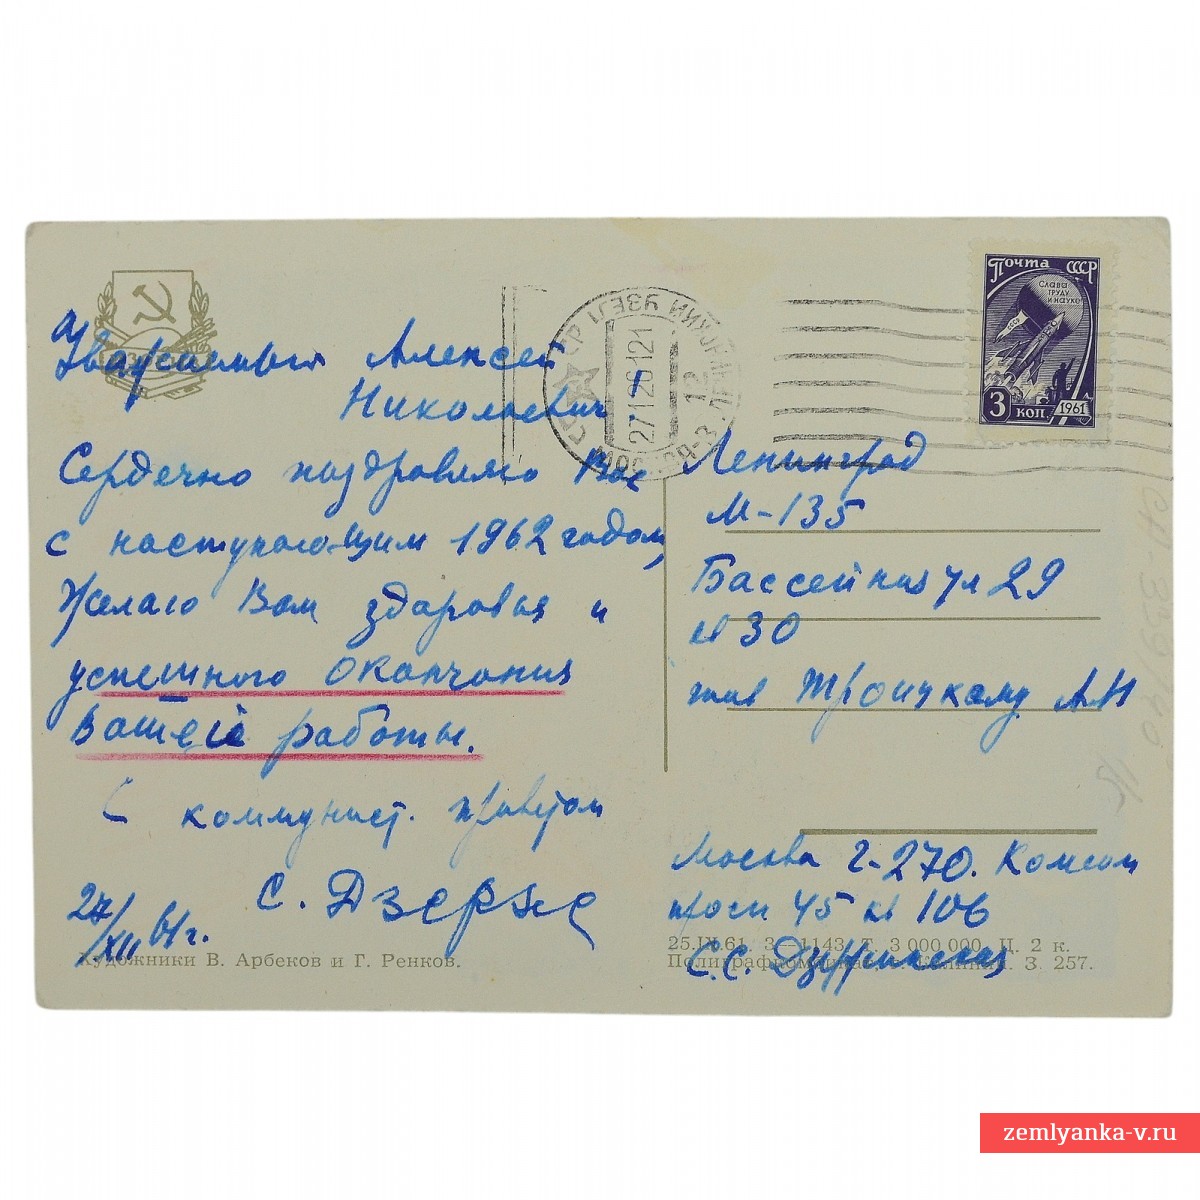 Уважаемый Алексей
Николаевич
Сердечно поздравляю Вас
с наступающим 1962 годом,
Желаю Вам здоровья и
успешного окончания
Вашей работы.
С коммунист. приветом
С. Дзерж
27/XII 61 г.
Художники В. Арбеков и Г. Ренков.
Почта СССР
Слава
труду
и науке
СССР
3 коп 1961
2712612
12
Ленинград
М-135
Бассейная ул 29
кв 30
тов Троицкому А.Н
Москва Г-270. Комсом
просп 45 кв 106
25.IX.61. З—1143. Т. 3 000 000. Ц. 2 к.
З. 257.
С.С. Дзержинская
zemlyanka-v.ru